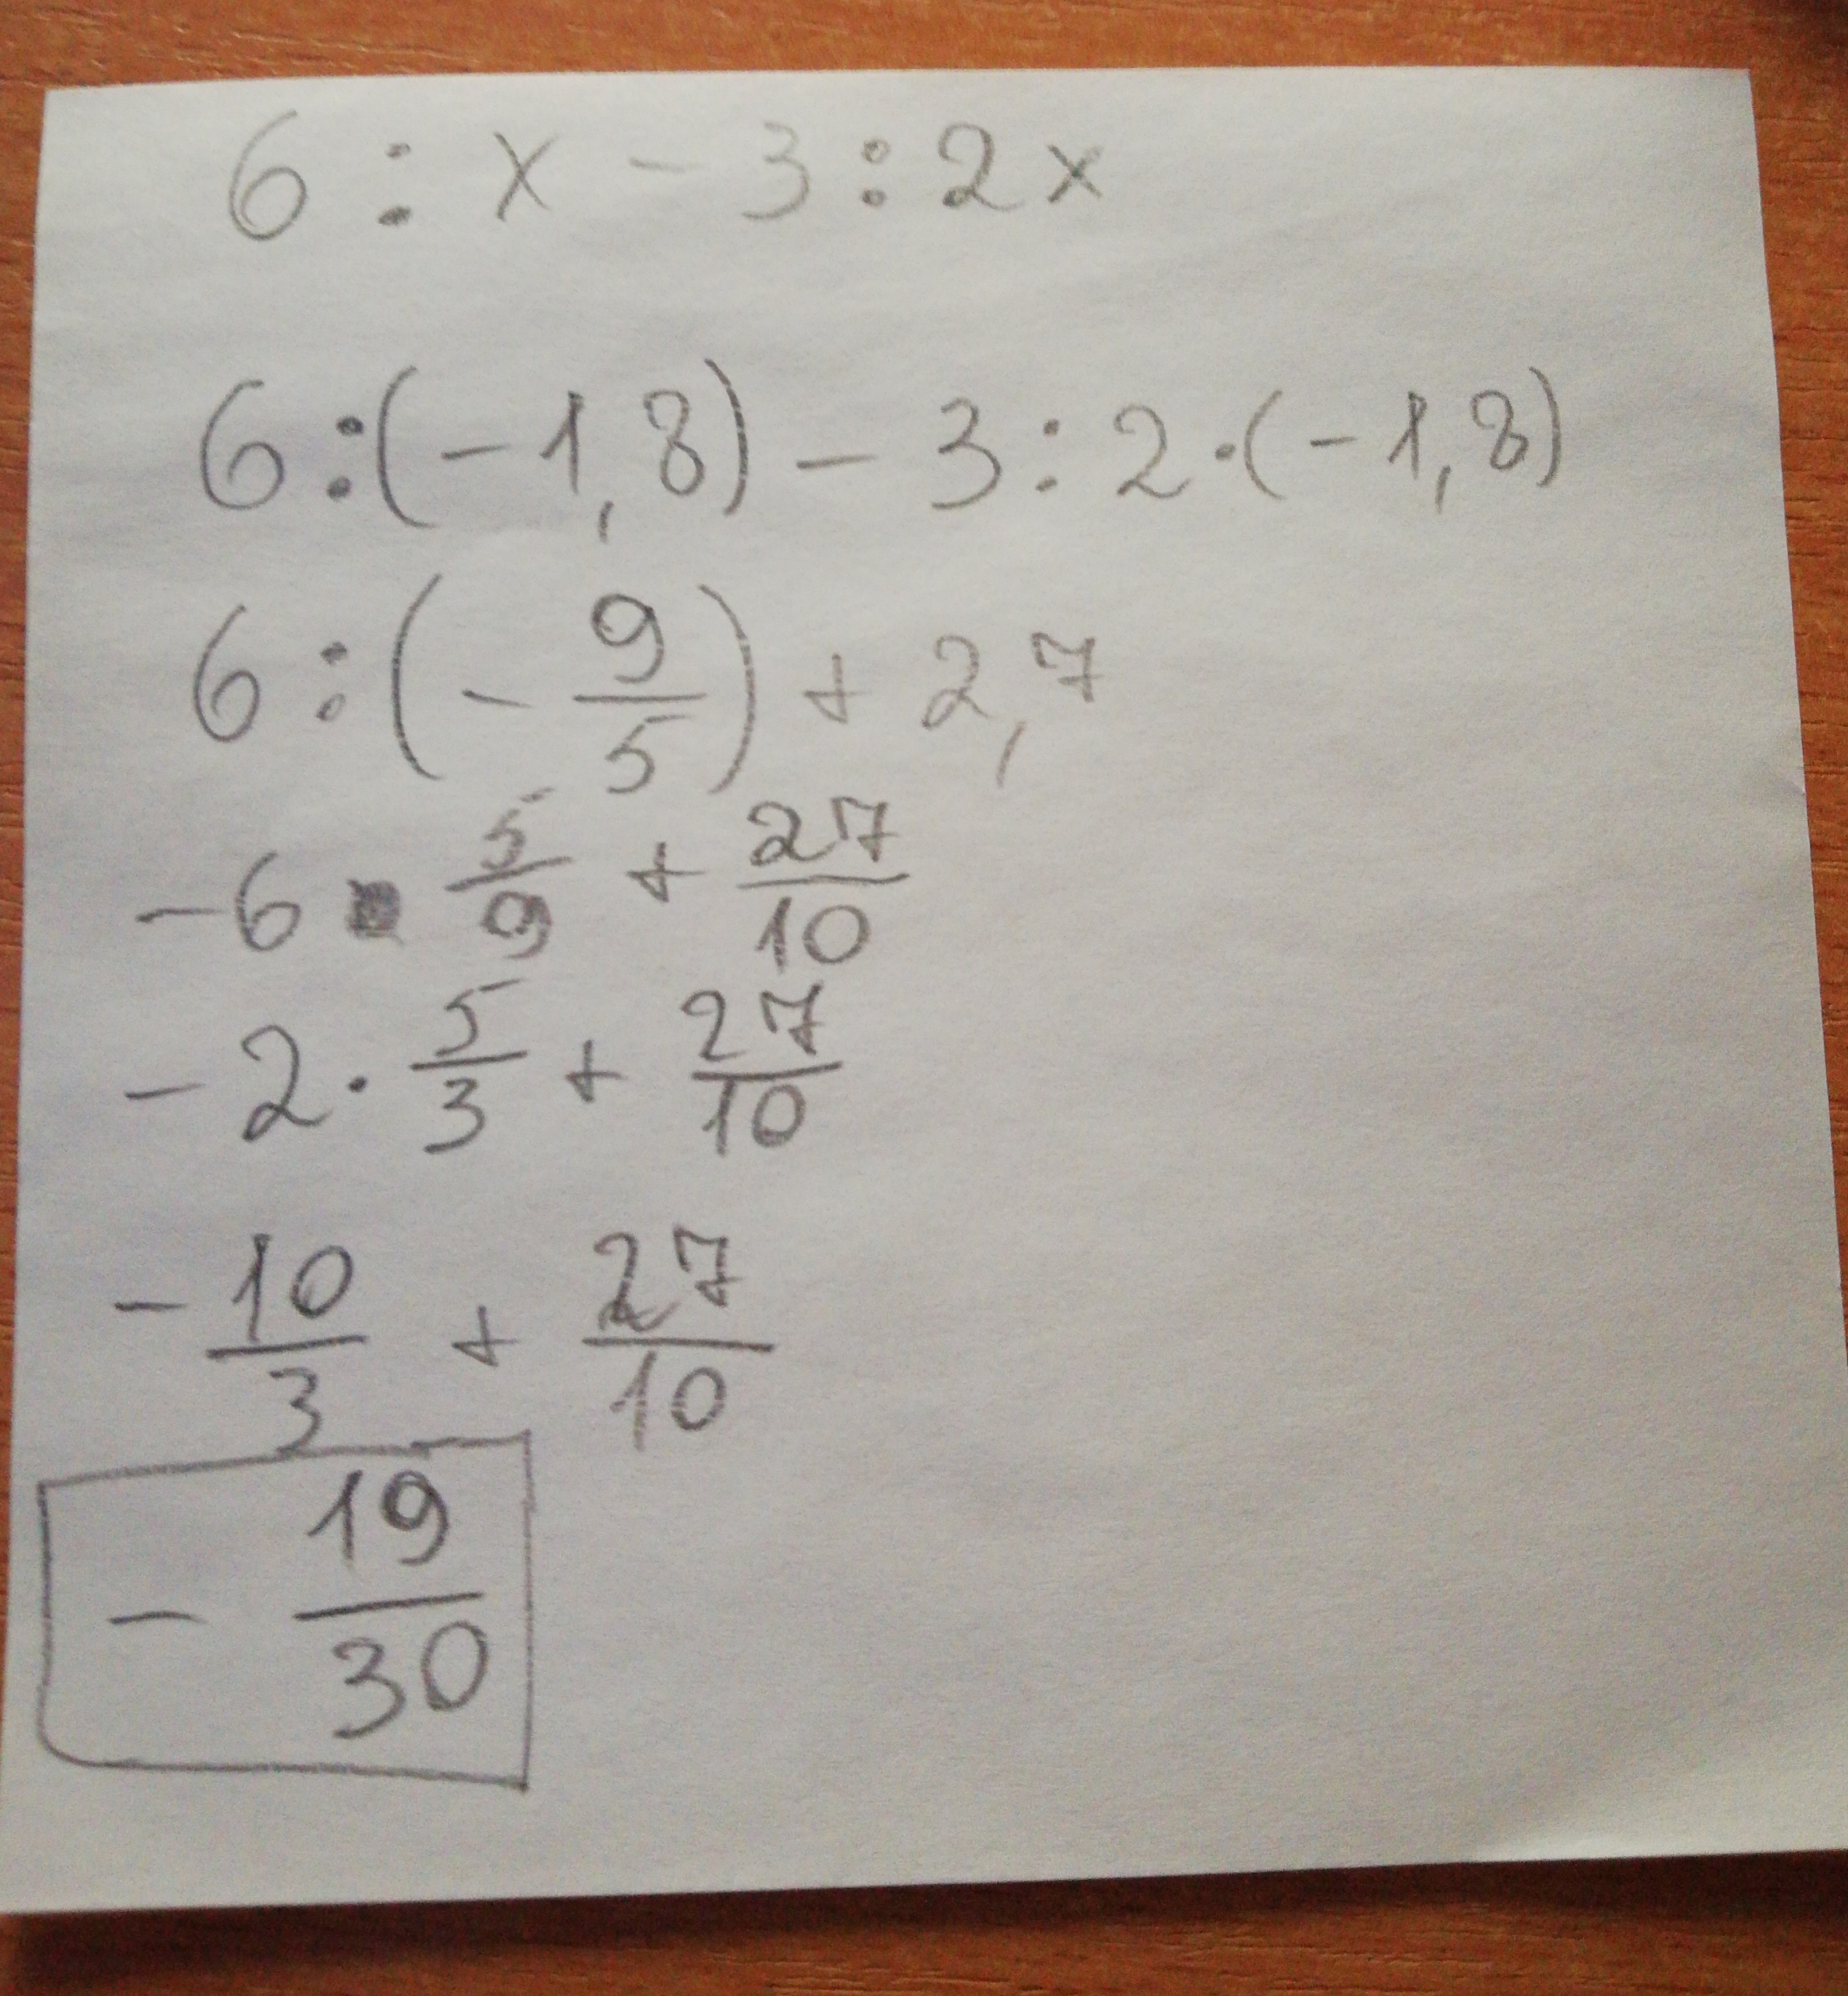 6 : x - 3 : 2x
6 : (-1,8) - 3 : 2 · (-1,8)
6 : (- 9/5) + 2,7
-6 · 5/9 + 27/10
-2 · 5/3 + 27/10
- 10/3 + 27/10
- 19/30